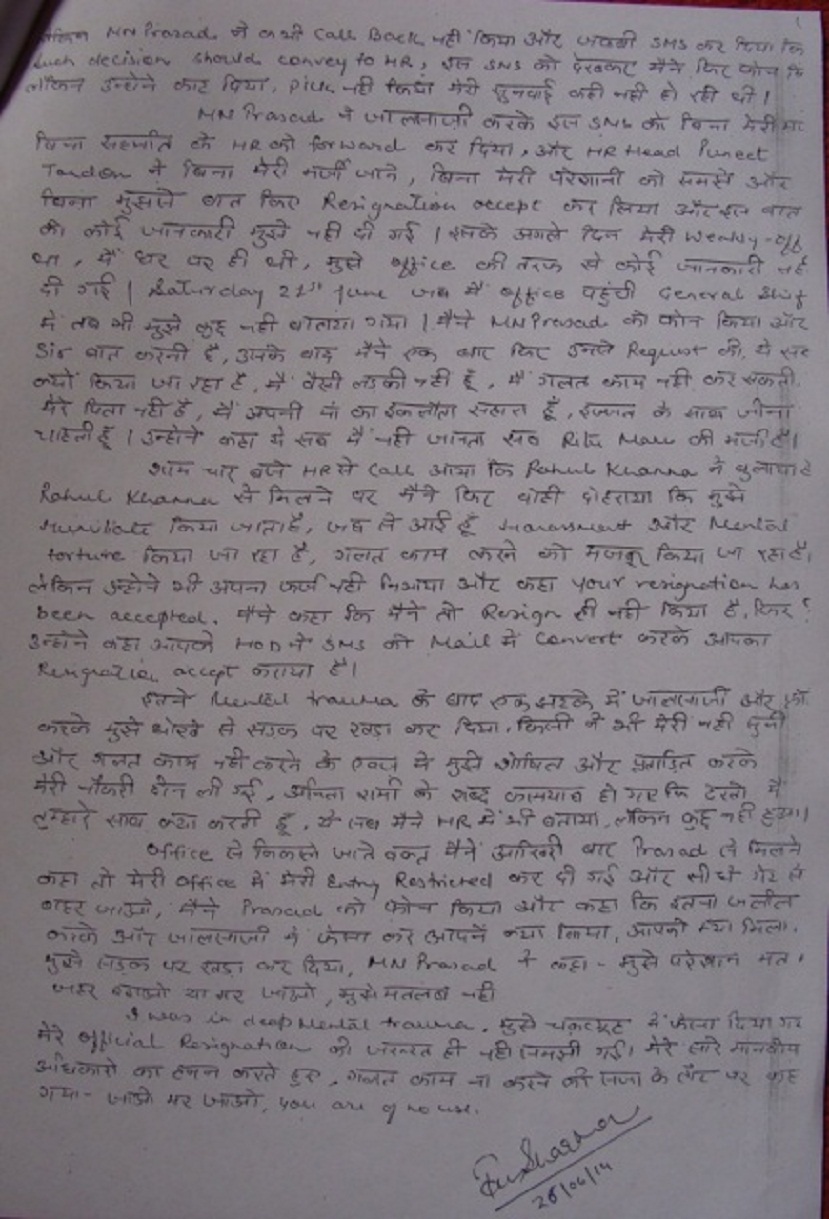 लेकिन MN Prasad ने कभी Call Back नहीं किया और जवाबी SMS कर दिया कि
Such decision should convey to HR, इस SMS को देखकर मैंने फिर फोन कि
लेकिन उन्होंने काट दिया, Pick नहीं किया मेरी सुनवाई कहीं नहीं हो रही थी।
MN Prasad ने जालसाजी करके इस SMS को बिना मेरी
बिना सहमति के HR को forward कर दिया, और HR Head Puneet
Tandon ने बिना मेरी मर्जी जाने, बिना मेरी परेशानी को समझे और
बिना मुझसे बात किए Resignation accept कर लिया और इस बात
की कोई जानकारी मुझे नहीं दी गई। इसके अगले दिन मेरी weekly-off
था, मैं घर पर ही थी, मुझे office की तरफ से कोई जानकारी नहीं
दी गई। Saturday 21st June जब मैं office पहुंची General Shift
में तब भी मुझे कुछ नहीं बताया गया। मैंने MN Prasad को फोन किया और
Sir बात करनी है, उसके बाद मैंने एक बार फिर उनसे Request की, ये सब
क्यों किया जा रहा है, मैं वैसी लड़की नहीं हूँ, मैं गलत काम नहीं कर सकती.
मेरे पिता नहीं है, मैं अपनी मां का इकलौता सहारा हूँ, इज्जत के साथ जीना
चाहती हूँ। उन्होंने कहा ये सब मैं नहीं जानता सब की मर्जी है।
शाम चार बजे HR से Call आया कि Rahul Khanna ने बुलाया है
Rahul Khanna से मिलने पर मैंने फिर वोही दोहराया कि मुझे
Humiliate किया जाता है, जब से आई हूँ Harassment और Mental
torture किया जा रहा है, गलत काम करने को मजबूर किया जा रहा है।
लेकिन उन्होंने भी अपना फर्ज नहीं निभाया और कहा your resignation has
been accepted. मैंने कहा कि मैंने तो Resign ही नहीं किया है, फिर?
उन्होंने कहा आपके HOD ने SMS को Mail में Convert करके आपका
Resignation accept कराया है।
इतने Mental trauma के बाद एक झटके में जालसाजी और
करके मुझे धोखे से सड़क पर खड़ा कर दिया. किसी ने भी मेरी नहीं सुनी
और गलत काम नहीं करने के एवज में मुझे शोषित और प्रताड़ित करके
मेरी नौकरी छीन ली गई, अनिता शर्मा के शब्द कामयाब हो गए कि देखो मैं
तुम्हारे साथ क्या करती हूँ, ये सब मैंने HR में भी बताया, लेकिन कुछ नहीं हुआ।
Office से निकाले जाते वक्त मैंने आखिरी बार Prasad से मिलने
कहा तो मेरी office में मेरी Entry Restricted कर दी गई और सीधे गेट से
बाहर जाओ, मैंने Prasad को फोन किया और कहा कि इतना जलील
करके और जालसाजी में फंसा कर आपने क्या किया, आपको क्या मिला.
मुझे सड़क पर खड़ा कर दिया, MN Prasad ने कहा - मुझे परेशान मत
जहर खाओ या मर जाओ, मुझे मतलब नहीं
I was in deep Mental trauma. मुझे चक्रव्यूह में फंसा दिया गया
मेरे official Resignation की जरूरत ही नहीं समझी गई। मेरे सारे मानवीय
अधिकारों का हनन करते हुए, गलत काम ना करने की सजा के तौर पर कह
गया - जाओ मर जाओ, you are of no use.
28/06/14